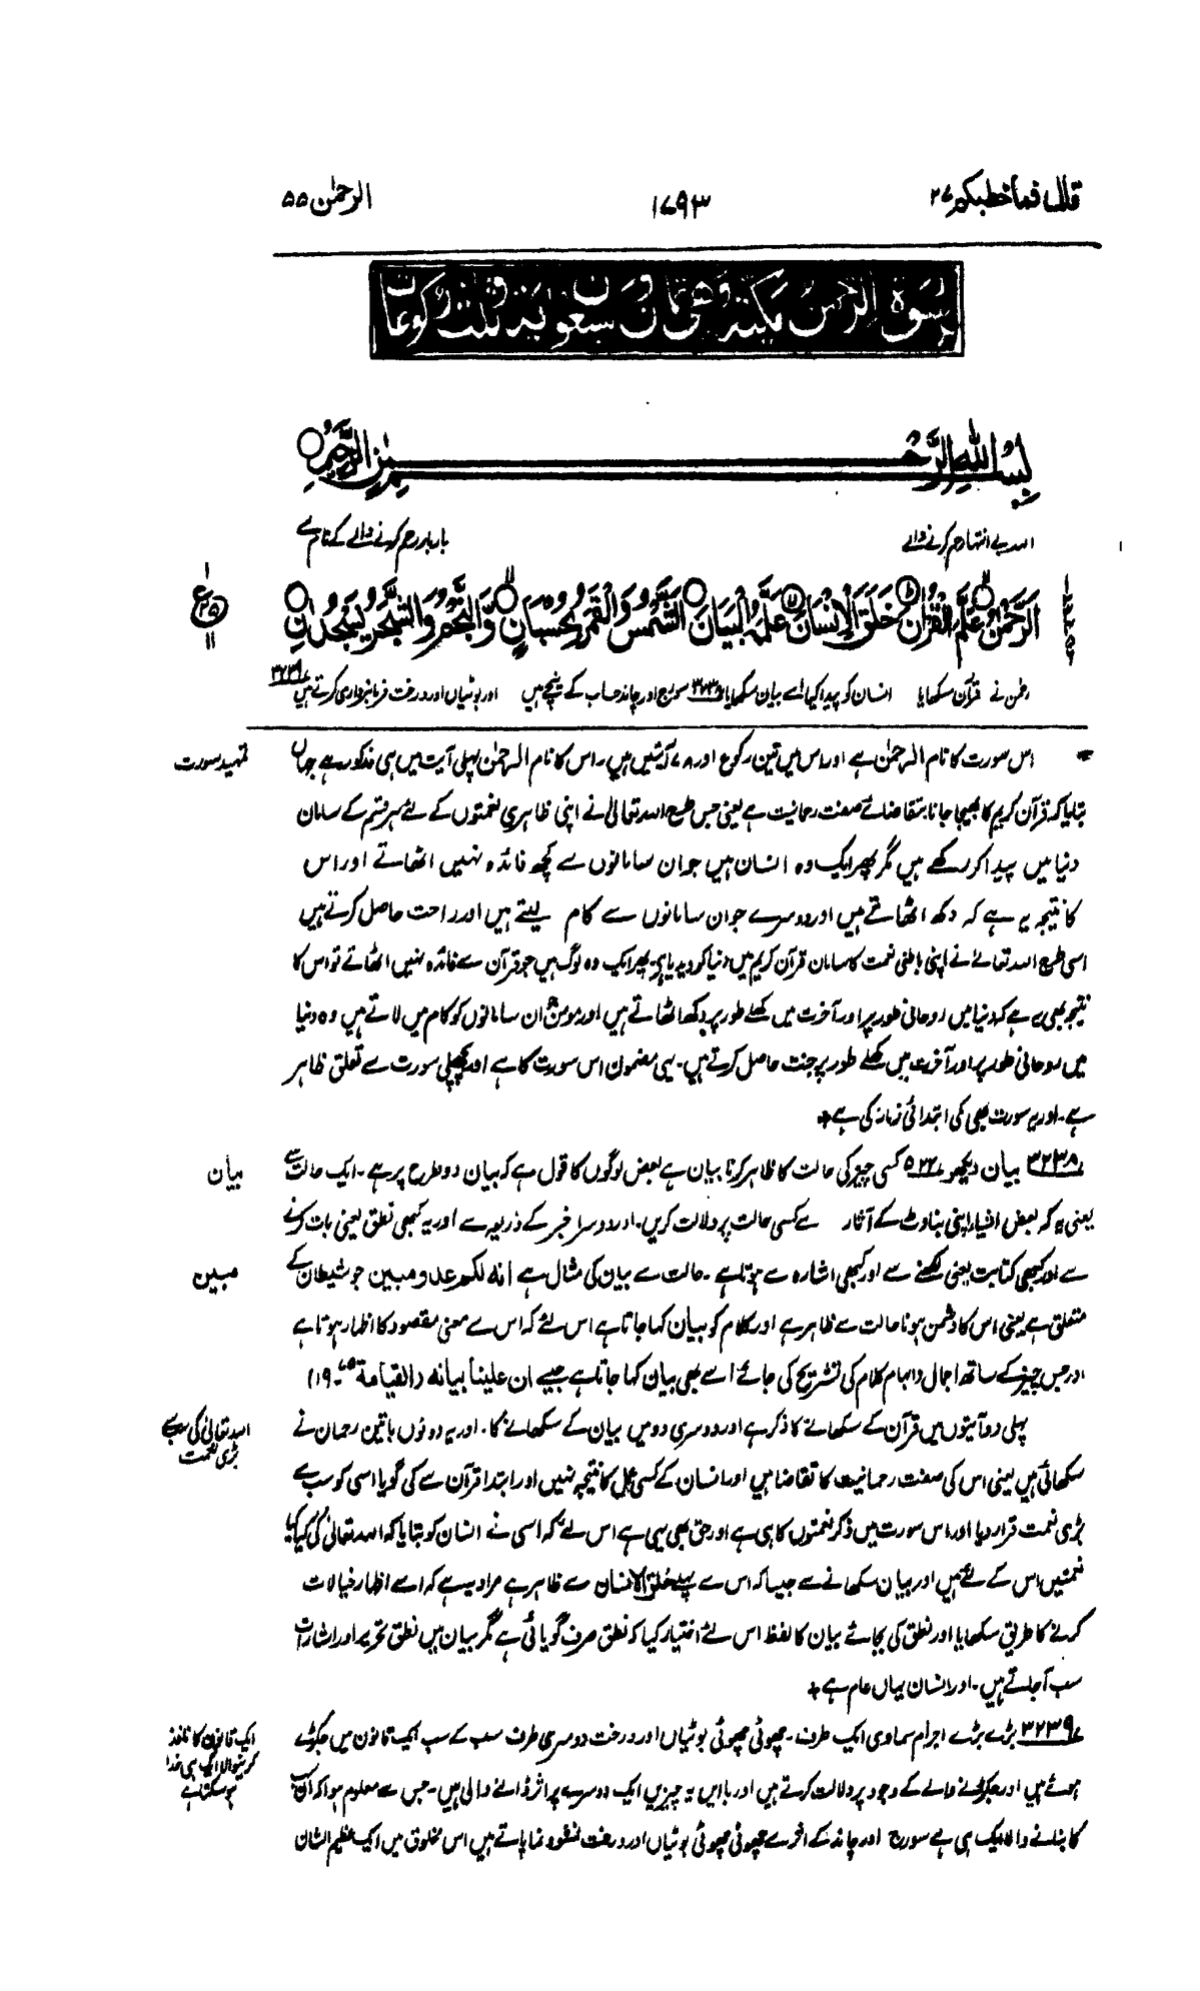 قال فما خطبکم ۲۷
۱۷۹۳
الرحمٰن ۵۵
سورة الرحمن مكية وهي ثمان وسبعون اية وثلث ركوعات
بِسْمِ اللهِ الرَّحْمٰنِ الرَّحِيْمِ
اللہ بے انتہا رحم کرنے والے
بار بار رحم کرنے والے کے نام سے
اَلرَّحْمٰنُ عَلَّمَ الْقُرْاٰنَ خَلَقَ الْاِنْسَانَ عَلَّمَهُ الْبَيَانَ اَلشَّمْسُ وَالْقَمَرُ بِحُسْبَانٍ وَّالنَّجْمُ وَالشَّجَرُ يَسْجُدٰنِ
رحمٰن نے قرآن سکھایا انسان کو پیدا کیا اسے بیان سکھایا ۳۲۳۸ سورج اور چاند حساب کے نیچے ہیں اور بوٹیاں اور درخت فرمانبرداری کرتے ہیں ۳۲۳۹
تمہید سورت
اس سورت کا نام الرحمٰن ہے اور اس میں تین رکوع اور ۷۸ آیتیں ہیں۔ اس کا نام الرحمٰن پہلی آیت میں ہی مذکور ہے جہاں
بتلایا کہ قرآن کریم کا بھیجا جانا بتقاضائے صفت رحمانیت ہے یعنی جس طرح اللہ تعالیٰ نے اپنی ظاہری نعمتوں کے لئے ہر قسم کے سامان
دنیا میں پیدا کر رکھے ہیں مگر پھر ایک وہ انسان ہیں جو ان سامانوں سے کچھ فائدہ نہیں اٹھاتے اور اس
کا نتیجہ یہ ہے کہ دکھ اٹھاتے ہیں اور دوسرے جو ان سامانوں سے کام لیتے ہیں اور راحت حاصل کرتے ہیں
اسی طرح اللہ تعالےٰ نے اپنی باطنی نعمت کا سامان قرآن کریم میں دنیا کو دیدیا ہے پھر ایک وہ لوگ ہیں جو قرآن سے فائدہ نہیں اٹھاتے تو اس کا
نتیجہ بھی یہ ہے کہ دنیا میں روحانی طور پر اور آخرت میں کھلے طور پر دکھ اٹھاتے ہیں اور مومن ان سامانوں کو کام میں لاتے ہیں وہ دنیا
میں روحانی طور پر اور آخرت میں کھلے طور پر جنت حاصل کرتے ہیں۔ یہی مضمون اس سورت کا ہے اور پچھلی سورت سے تعلق ظاہر
ہے۔ اور یہ سورت بھی کی ابتدائی زمانہ کی ہے +
بیان
۳۲۳۸ بیان دیکھو ۵۲۲ کسی چیز کی حالت کا ظاہر کرنا بیان ہے بعض لوگوں کا قول ہے کہ بیان دو طرح پر ہے۔ ایک حالت سے
یعنی یہ کہ بعض اشیاء اپنی بناوٹ کے آثار سے کسی حالت پر دلالت کریں۔ اور دوسرا خبر کے ذریعہ سے اور یہ کبھی نطق یعنی بات کرنے
مبین
سے اور کبھی کتابت یعنی لکھنے سے اور کبھی اشارہ سے ہوتا ہے۔ حالت سے بیان کی مثال ہے انه لکم عدو مبین جو شیطان کے
متعلق ہے یعنی اس کا دشمن ہونا حالت سے ظاہر ہے اور کلام کو بیان کہا جاتا ہے اس لئے کہ اس سے معنی مقصود کا اظہار ہوتا ہے
اور جس چیز کے ساتھ اجمال و ابہام کلام کی تشریح کی جائے اسے بھی بیان کہا جاتا ہے جیسے ان علینا بیانه (القیامة ۷۵۔ ۱۹)
اللہ تعالیٰ کی سب سے بڑی نعمت
پہلی دو آیتوں میں قرآن کے سکھانے کا ذکر ہے اور دوسری دو میں بیان کے سکھانے کا۔ اور یہ دونوں باتیں رحمان نے
سکھائی ہیں یعنی اس کی صفت رحمانیت کا تقاضا ہیں اور انسان کے کسی عمل کا نتیجہ نہیں اور ابتدا قرآن سے کی گویا اسی کو سب سے
بڑی نعمت قرار دیا اور اس سورت میں ذکر نعمتوں کا ہی ہے اور حق بھی یہی ہے اس لئے کہ اسی نے انسان کو بتایا کہ اللہ تعالیٰ کی کیا کیا
نعمتیں اس کے لئے ہیں اور بیان سکھانے سے جیسا کہ اس سے پہلے خلق الانسان سے ظاہر ہے مراد یہ ہے کہ اسے اظہار خیالات
کرنے کا طریق سکھایا اور نطق کی بجائے بیان کا لفظ اس لئے اختیار کیا کہ نطق صرف گویائی ہے مگر بیان میں نطق تحریر اور اشارات
سب آ جاتے ہیں۔ اور انسان یہاں عام ہے +
ایک قانون کا نافذ کرنیوالا ایک ہی خدا ہو سکتا ہے
۳۲۳۹ بڑے بڑے اجرام سماوی ایک طرف۔ چھوٹی چھوٹی بوٹیاں اور درخت دوسری طرف سب کے سب ایک قانون میں جکڑے
ہوئے ہیں اور جکڑنے والے کے وجود پر دلالت کرتے ہیں اور باایں یہ چیزیں ایک دوسرے پر اثر ڈالنے والی ہیں۔ جس سے معلوم ہوا کہ ان سب
کا بنانے والا ایک ہی ہے سورج اور چاند کے اثر سے چھوٹی چھوٹی بوٹیاں اور درخت نشوونما پاتے ہیں اس مخلوق میں ایک عظیم الشان